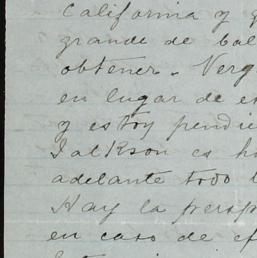 California y
grande de
obtener. Verg
en lugar de
y estoy pendie
Jalkson es h
adelante todo
Hay la persp
en caso de ef